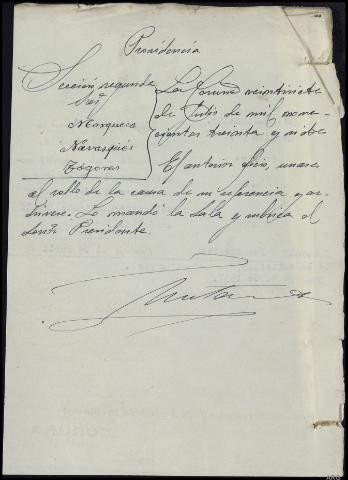 Providencia
Sección segunda
Sres
Marquesa
Navasqués
La Coruña veintisiete
de Julio de mil nove
cientos treinta y nueve
El anterior oficio, unase
al rollo de la causa de su referencia y ar-
chivese. Lo mandó la Sala y rubrica el
Señor Presidente.